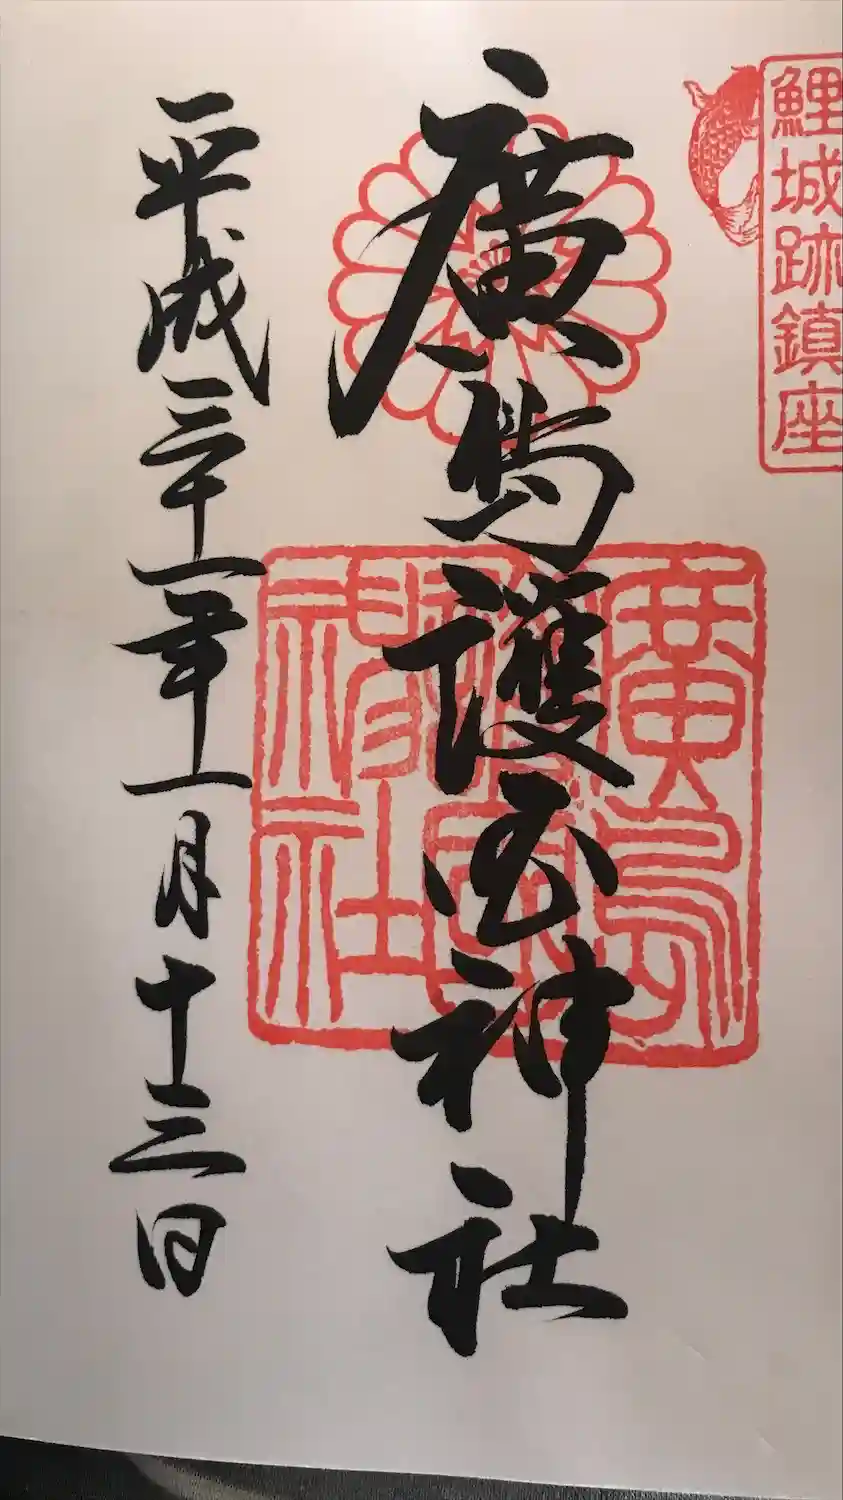 鯉城跡鎮座
廣島護国神社
廣島
護國
神社
平成三十一年一月十三日